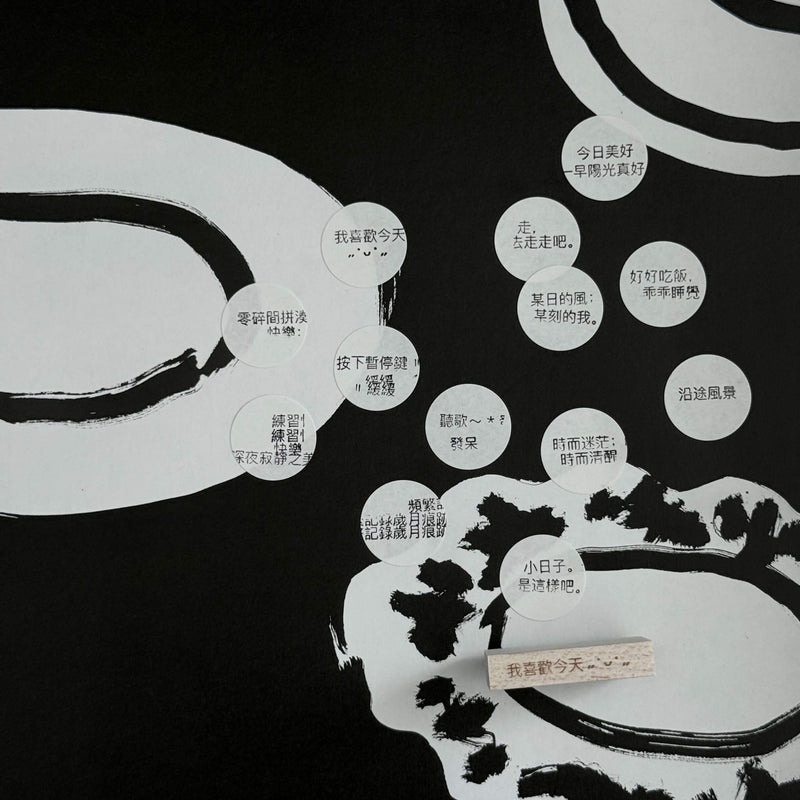 今日美好
一早陽光真好
我喜歡今天
走,
去走走吧。
好好吃飯,
乖乖睡覺
某日的風;
某刻的我。
零碎間拼湊
快樂:
按下暫停鍵
緩緩
緩緩
沿途風景
聽歌～*
發呆
練習
練習
快樂
深夜寂靜之美
時而迷茫;
時而清醒
頻繁記
記錄歲月痕跡
記錄歲月痕跡
小日子。
是這樣吧。
我喜歡今天